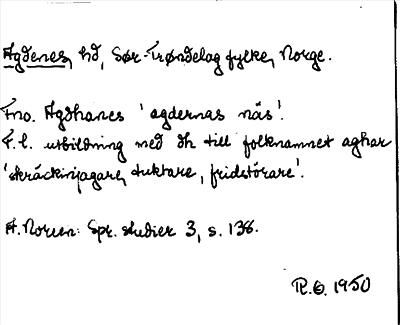 Agdenes, hd, Sør-Trøndelag fylke, Norge.
Fno. Agdhanes 'agdernas näs'.
F.l. utbildning med dh till folknamnet aghar
'skräckinjagare, tuktare, fridstörare'.
A. Noreen: Spr. studier 3, s. 138.
R.O. 1950